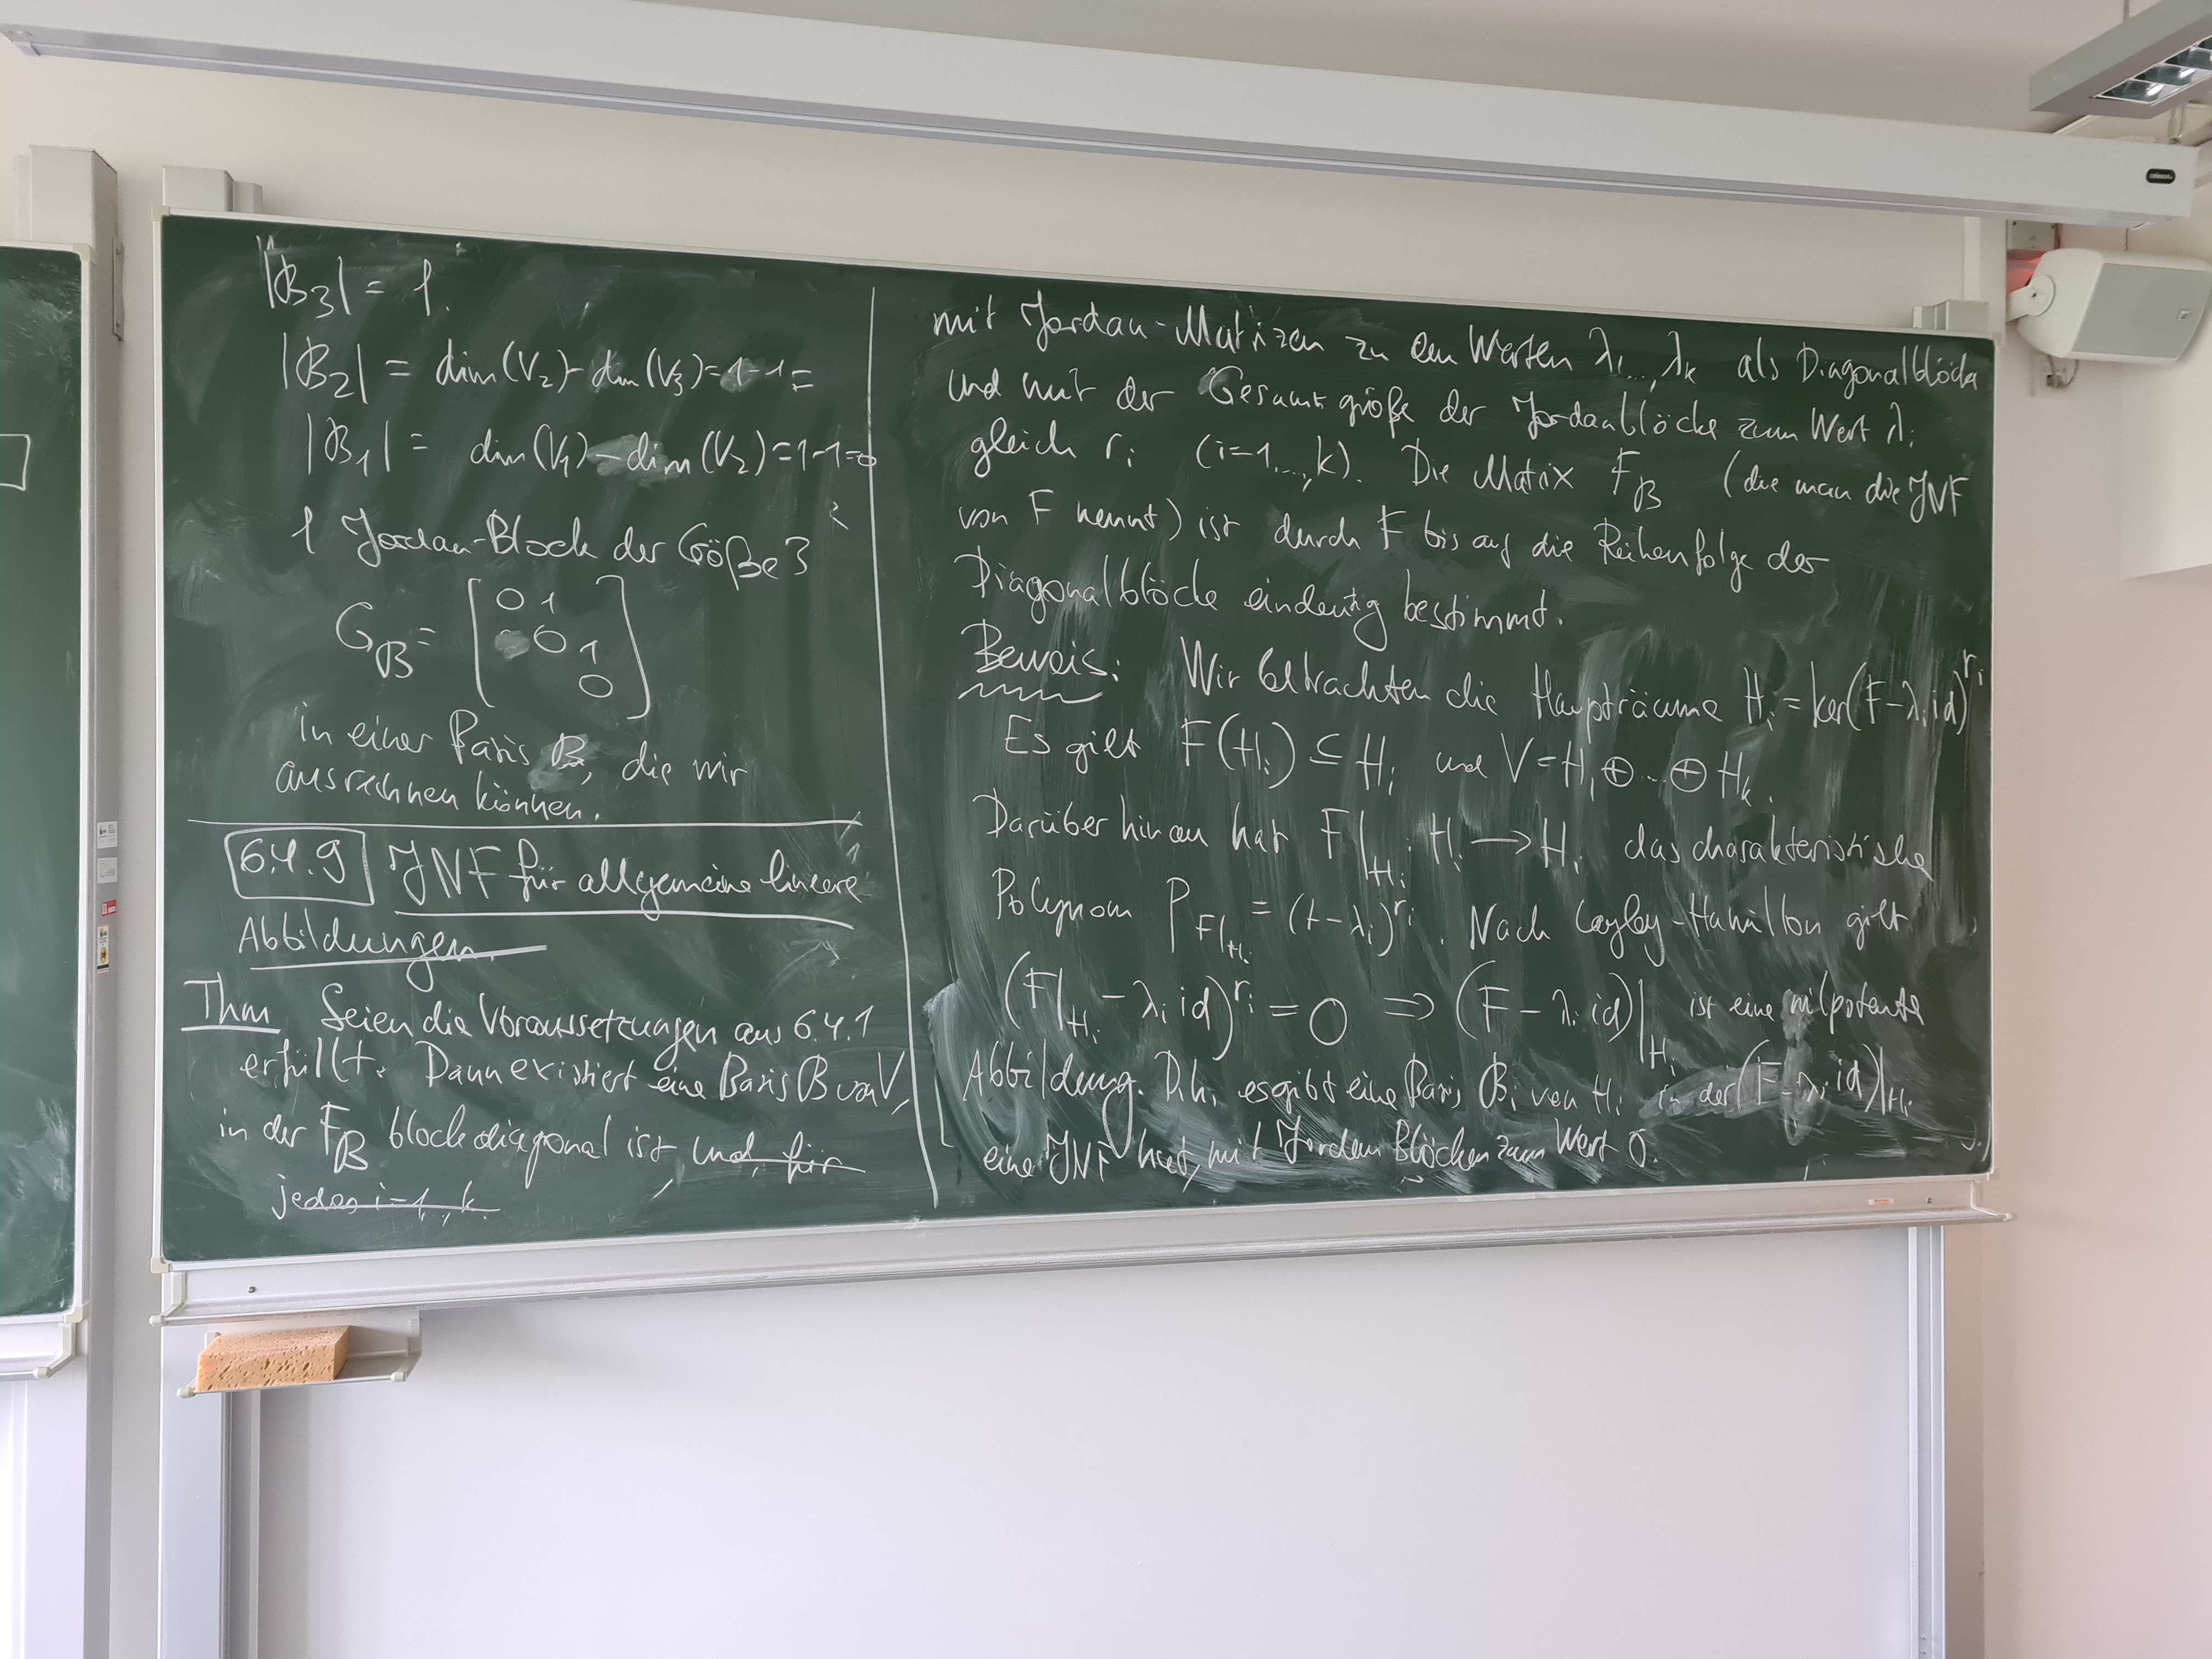 |B₃| = 1.
|B₂| = dim(V₂) - dim(V₃) = 1-1 =
|B₁| = dim(V₁) - dim(V₂) = 1-1=0
1 Jordan-Block der Größe 3
G_B = [ 0 1
0 1
0 ]
in einer Basis B, die wir
ausrechnen können.
6.4.9 JNF für allgemeine lineare
Abbildungen.
Thm Seien die Voraussetzungen aus 6.4.1
erfüllt. Dann existiert eine Basis B von V,
in der F_B blockdiagonal ist, und, für
jedes i=1,.,k
mit Jordan-Matrizen zu den Werten λ₁,...,λₖ als Diagonalblöcke
und mit der Gesamtgröße der Jordanblöcke zum Wert λᵢ
gleich rᵢ (i=1,...,k). Die Matrix F_B (die man die JNF
von F nennt) ist durch F bis auf die Reihenfolge der
Diagonalblöcke eindeutig bestimmt.
Beweis: Wir betrachten die Haupträume Hᵢ = ker(F-λᵢ id)^rᵢ
Es gilt F(Hᵢ) ⊆ Hᵢ und V = H₁ ⊕ ... ⊕ Hₖ.
Darüber hinaus hat F|_Hᵢ : Hᵢ → Hᵢ das charakteristische
Polynom P_F|_Hᵢ = (t-λᵢ)^rᵢ. Nach Cayley-Hamilton gilt
(F|_Hᵢ - λᵢ id)^rᵢ = 0 ⇒ (F - λᵢ id)|_Hᵢ ist eine nilpotente
Abbildung. D.h. es gibt eine Basis Bᵢ von Hᵢ in der (F-λᵢ id)|_Hᵢ
eine JNF hat, mit Jordan Blöcken zum Wert 0.